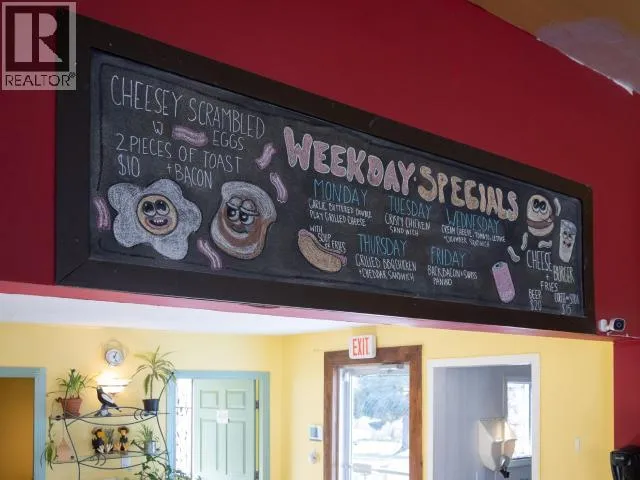 REALTOR®
CHEESEY SCRAMBLED
W EGGS
2 PIECES OF TOAST
$10 + BACON
WEEKDAY SPECIALS
MONDAY
GARLIC BUTTERED DOUBLE
PLAY GRILLED CHEESE
WITH SOUP OR FRIES
TUESDAY
CRISPY CHICKEN
SANDWICH
WEDNESDAY
CREAM CHEESE, TOMATO, LETTUCE
+ CUCUMBER SANDWICH
THURSDAY
GRILLED BBQ CHICKEN
+ CHEDDAR SANDWICH
FRIDAY
BACK BACON + SWISS
PANINO
CHEESE
BURGER
+
FRIES
BEER
$20
$15
EXIT